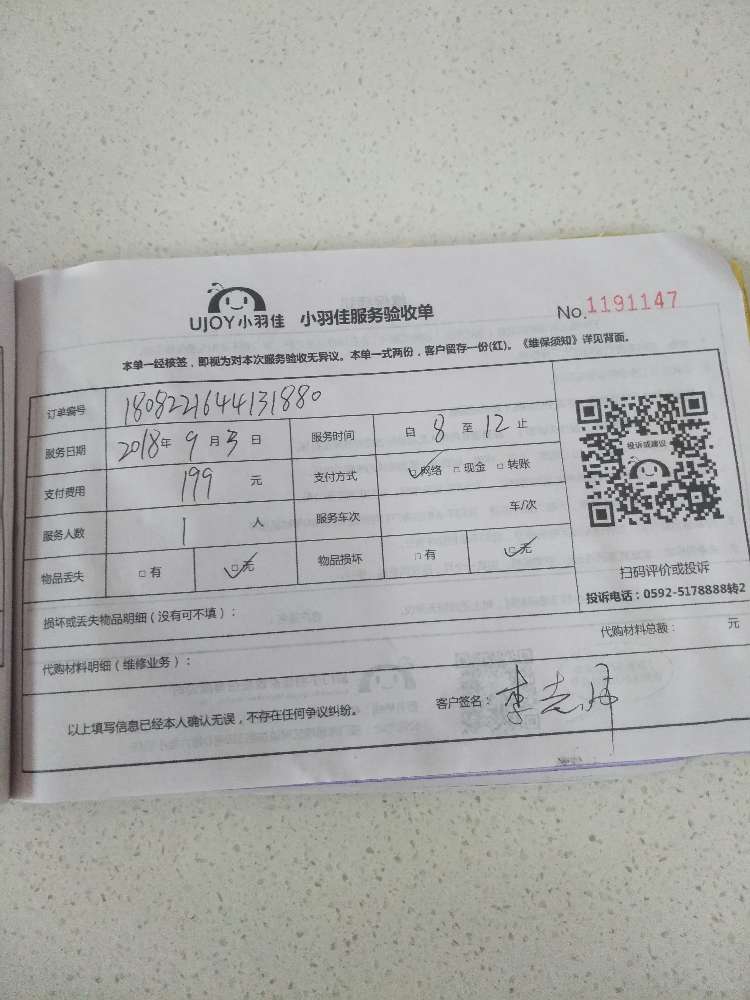 UJOY小羽佳 小羽佳服务验收单 No.1191147
本单一经核签，即视为对本次服务验收无异议。本单一式两份，客户留存一份(红)。《维保须知》详见背面。
订单编号 1808221644131880
服务日期 2018年 9月 3日 服务时间 自 8 至 12 止
支付费用 199 元 支付方式 □网络 □现金 □转账
服务人数 1 人 服务车次 车/次
物品丢失 □有 □无 物品损坏 □有 □无
投诉或建议
扫码评价或投诉
投诉电话：0592-5178888转2
损坏或丢失物品明细（没有可不填）：
代购材料明细（维修业务）： 代购材料总额： 元
以上填写信息已经本人确认无误，不存在任何争议纠纷。 客户签名：李志